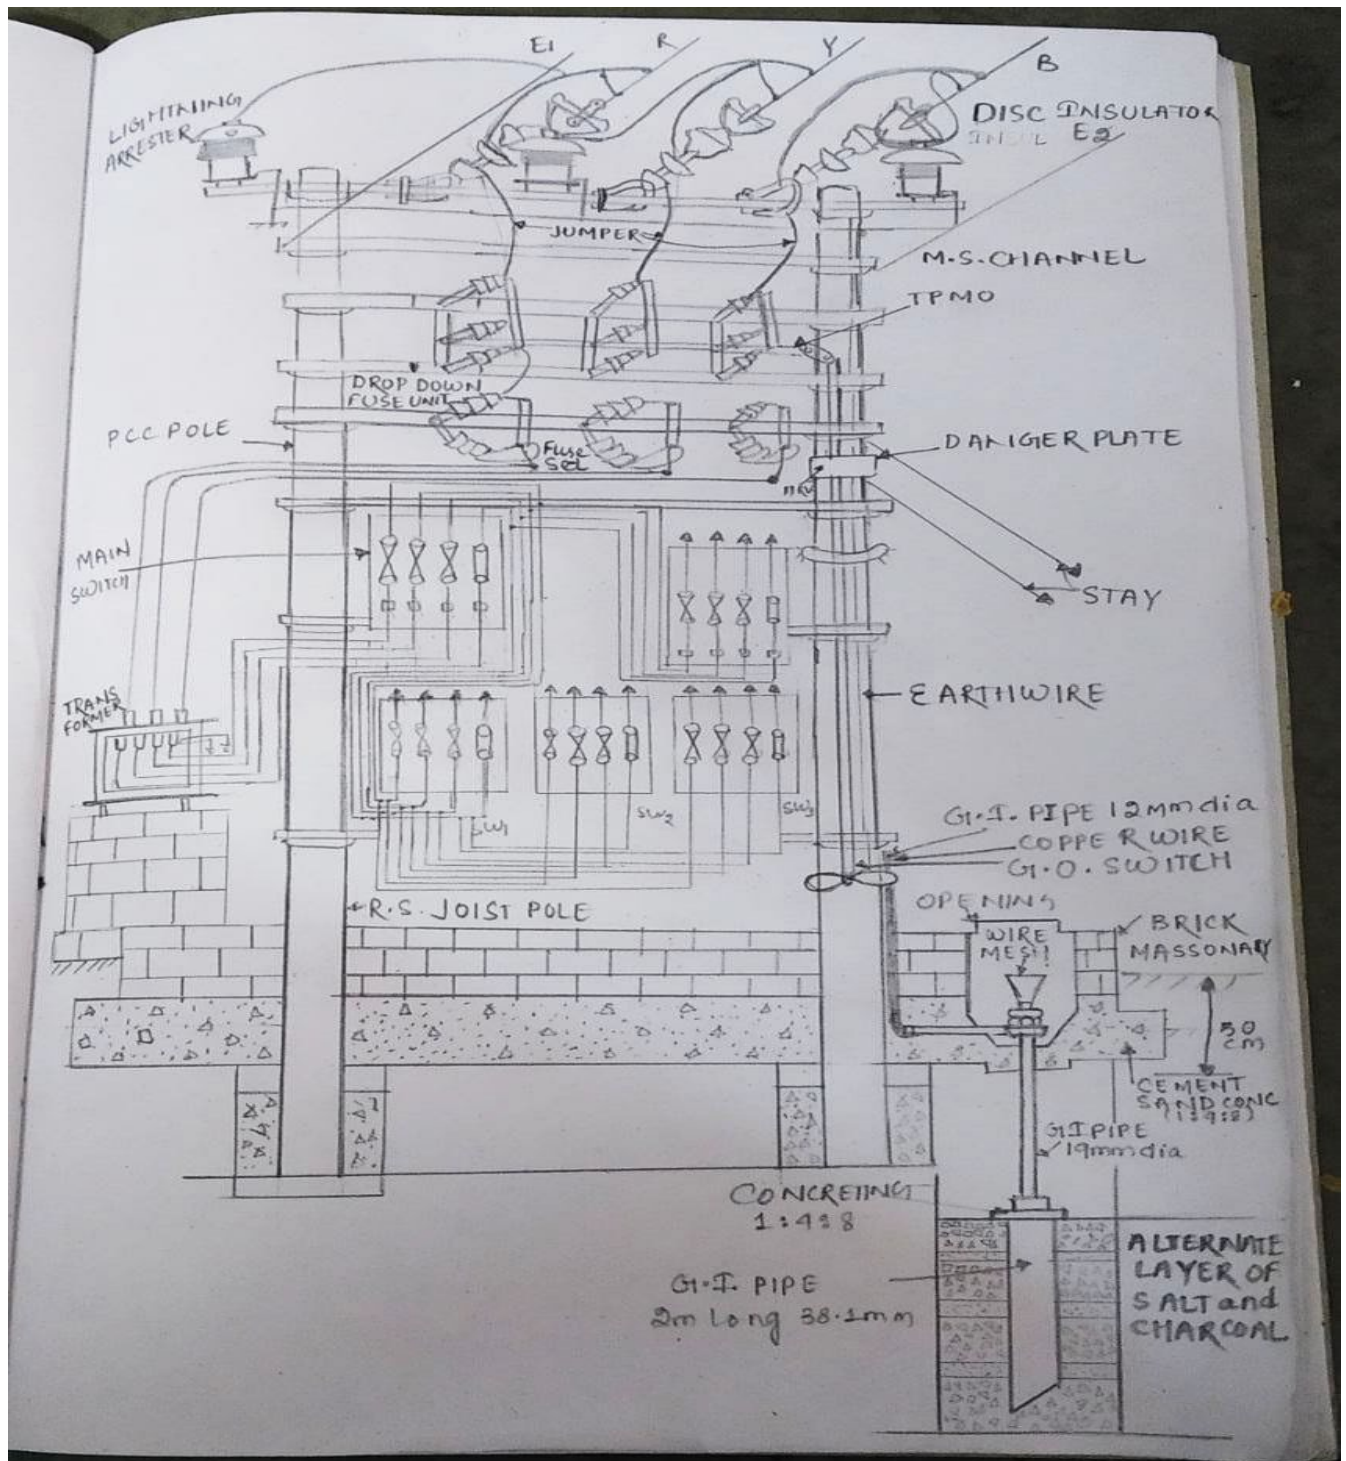 E1
R
Y
B
LIGHTNING
ARRESTER
DISC INSULATOR
E2
JUMPER
M.S.CHANNEL
TPMO
DROP DOWN
FUSE UNIT
PCC POLE
Fuse
DANGER PLATE
MAIN
SWITCH
STAY
EARTHWIRE
TRANS
FORMER
SW1
SW2
SW3
G.I. PIPE 12mm dia
COPPER WIRE
G.O. SWITCH
OPENING
R.S. JOIST POLE
WIRE
MESH
BRICK
MASSONARY
50
cm
CEMENT
SAND CONC
(1:4:8)
G.I PIPE
19mm dia
CONCRETING
1:4:8
G.I. PIPE
2m long 38.1mm
ALTERNATE
LAYER OF
SALT and
CHARCOAL